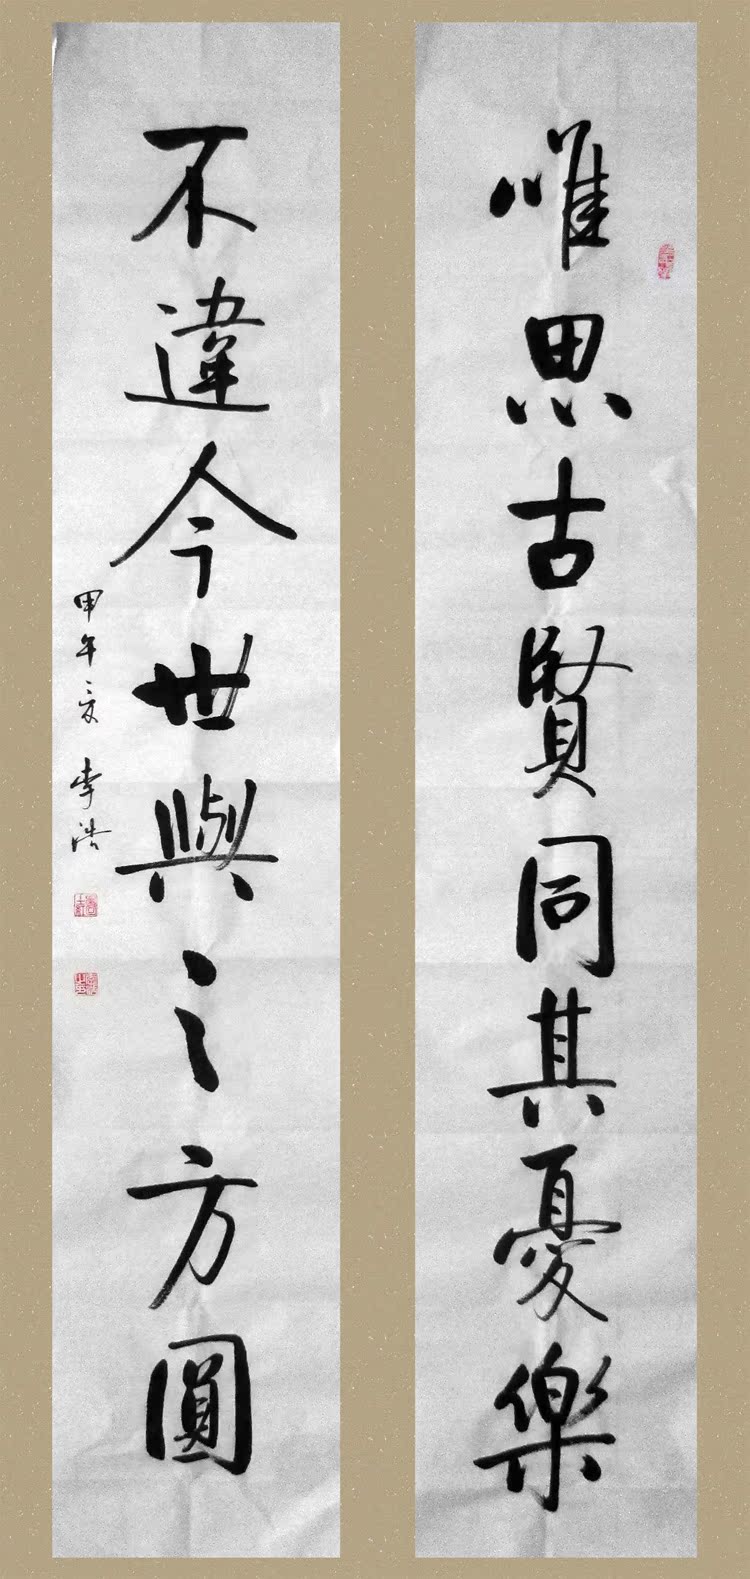 唯思古賢同其憂樂
不違今世與之方圓
甲午夏 李浩